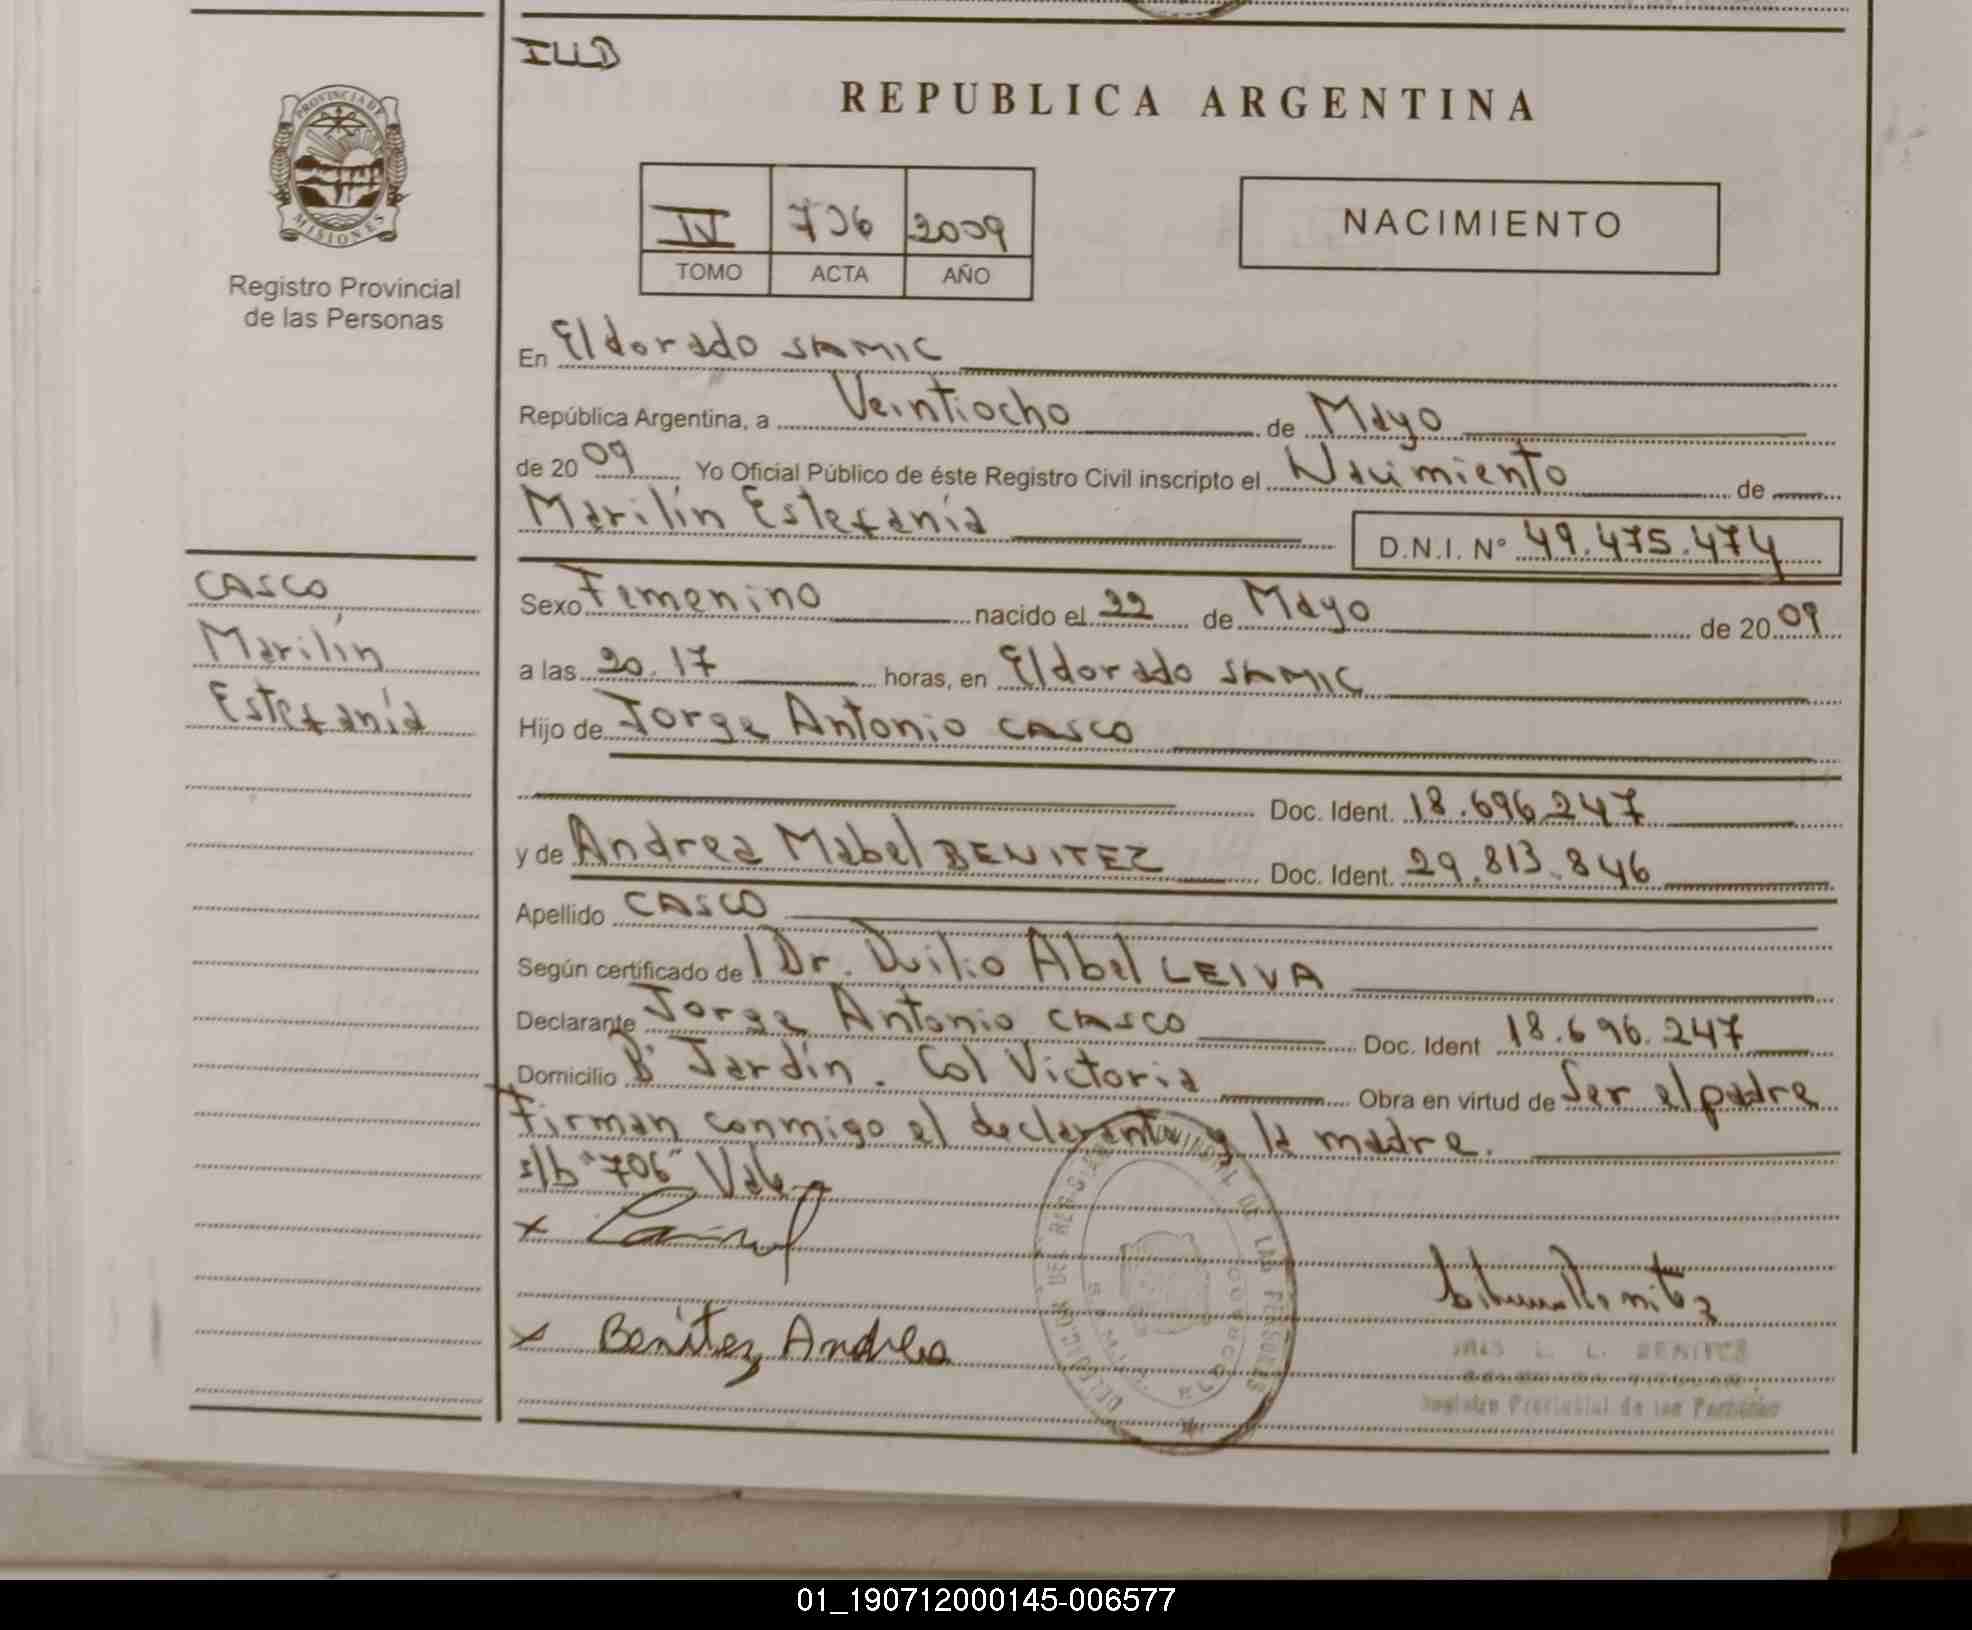 ILLB
REPUBLICA ARGENTINA
PROVINCIA DE
MISIONES
Registro Provincial
de las Personas
IV 706 2009
TOMO ACTA AÑO
NACIMIENTO
En Eldorado SAMIC
República Argentina, a Veintiocho de Mayo
de 20 09 Yo Oficial Público de éste Registro Civil inscripto el Nacimiento de
Marilín Estefanía D.N.I. N° 49.475.474
CASCO
Marilín
Estefanía
Sexo Femenino nacido el 22 de Mayo de 20 09
a las 20.17 horas, en Eldorado SAMIC
Hijo de Jorge Antonio CASCO
Doc. Ident. 18.696.247
y de Andrea Mabel BENITEZ Doc. Ident. 29.813.846
Apellido CASCO
Según certificado de l Dr. Duilio Abel LEIVA
Declarante Jorge Antonio CASCO Doc. Ident 18.696.247
Domicilio B° Jardín. Col Victoria Obra en virtud de Ser el padre
Firman conmigo el declarante y la madre.
s/b "706" Vale
x
x Benitez Andrea
L. L. BENITEZ
Registro Provincial de las Personas
01_190712000145-006577